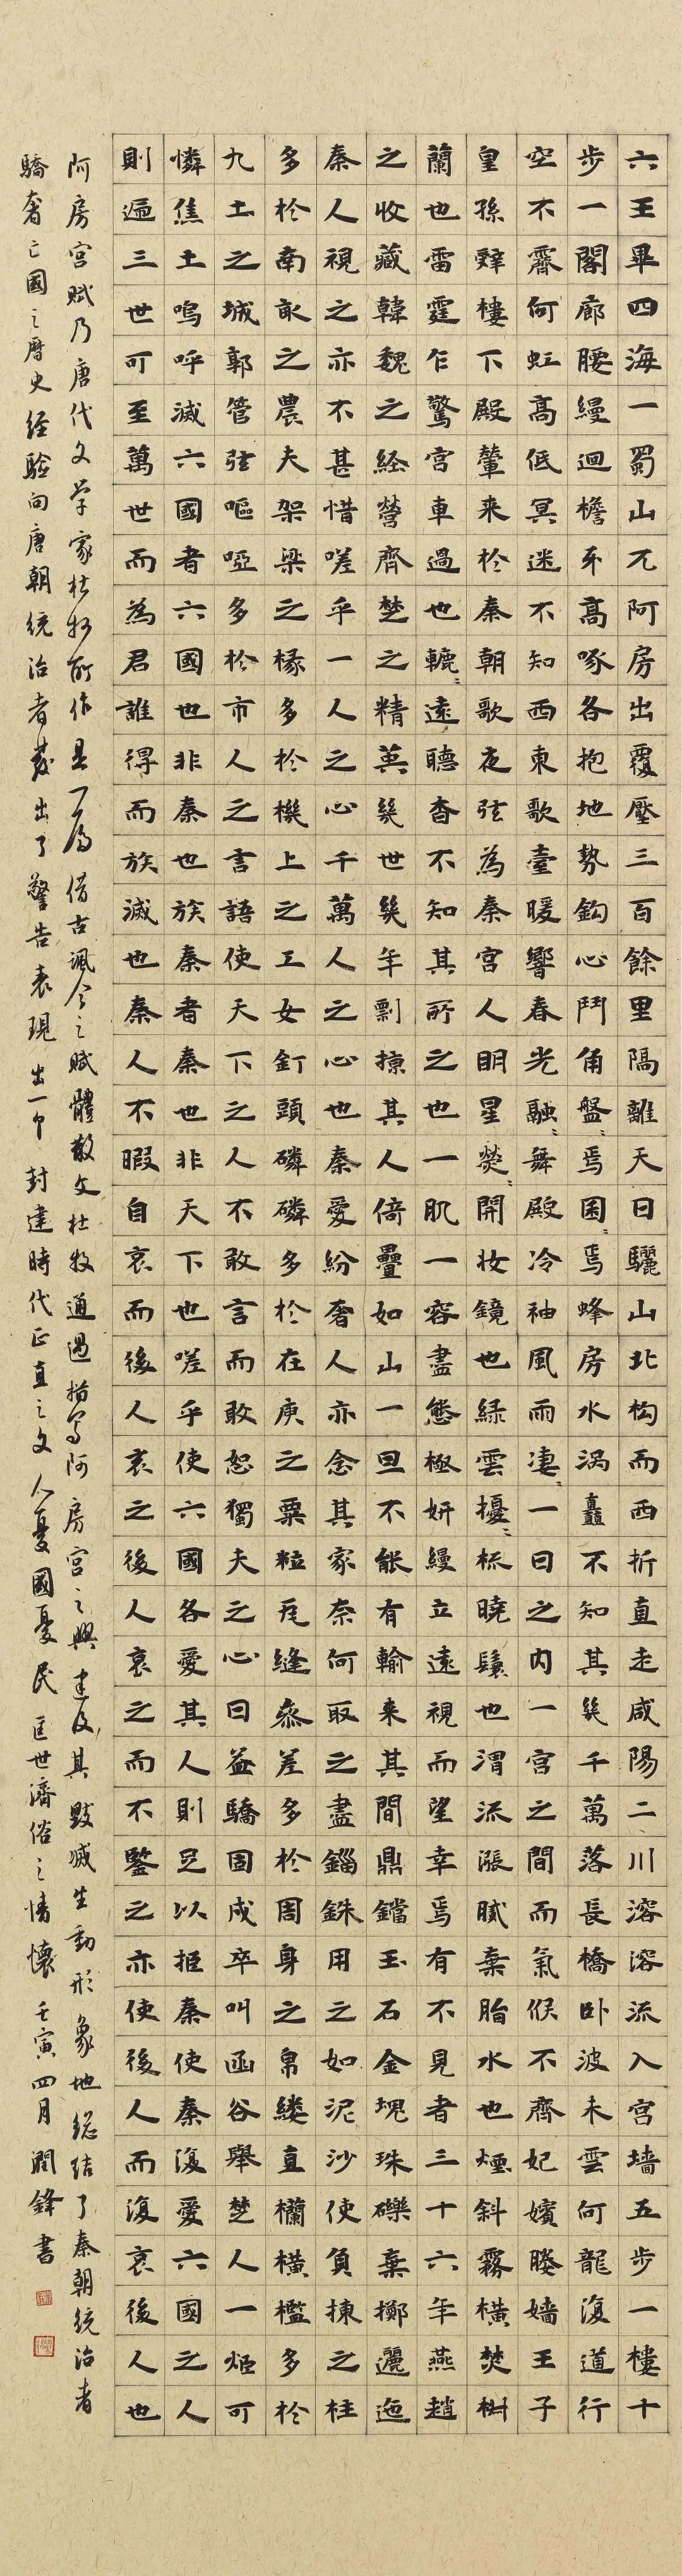 六王畢四海一蜀山兀阿房出覆壓三百餘里隔離天日驪山北构而西折直走咸陽二川溶溶流入宮墙五步一樓十
步一閣廊腰縵迴檐牙高啄各抱地勢鈎心鬥角盤〻焉囷〻焉蜂房水渦矗不知其幾千萬落長橋卧波未雲何龍復道行
空不霽何虹高低冥迷不知西東歌臺暖響春光融〻舞殿冷袖風雨凄〻一日之內一宮之間而氣候不齊妃嬪媵嬙王子
皇孫辭樓下殿輦来於秦朝歌夜弦為秦宮人明星熒〻開妝鏡也緑雲擾〻梳曉鬟也渭流漲膩棄脂水也煙斜霧橫焚椒
蘭也雷霆乍驚宮車過也轆〻遠聽杳不知其所之也一肌一容盡態極妍縵立遠視而望幸焉有不見者三十六年燕趙
之收藏韓魏之経營齊楚之精英幾世幾年剽掠其人倚疊如山一旦不能有輸来其間鼎鐺玉石金塊珠礫棄擲邐迤
秦人視之亦不甚惜嗟乎一人之心千萬人之心也秦愛紛奢人亦念其家奈何取之盡錙銖用之如泥沙使負棟之柱
多於南畝之農夫架梁之椽多於機上之工女釘頭磷磷多於在庾之粟粒瓦縫參差多於周身之帛縷直欄橫檻多於
九土之城郭管弦嘔啞多於市人之言語使天下之人不敢言而敢怒獨夫之心日益驕固戍卒叫函谷舉楚人一炬可
憐焦土嗚呼滅六國者六國也非秦也族秦者秦也非天下也嗟乎使六國各愛其人則足以拒秦使秦復愛六國之人
則遞三世可至萬世而為君誰得而族滅也秦人不暇自哀而後人哀之後人哀之而不鑒之亦使後人而復哀後人也
阿房宮賦乃唐代文学家杜牧所作是一篇借古諷今之賦體散文杜牧通過描寫阿房宮之興建及其毀滅生動形象地總結了秦朝統治者
驕奢亡國之曆史經驗向唐朝統治者發出了警告表現出一個封建時代正直之文人憂國憂民匡世濟俗之情懷壬寅四月潤鋒書